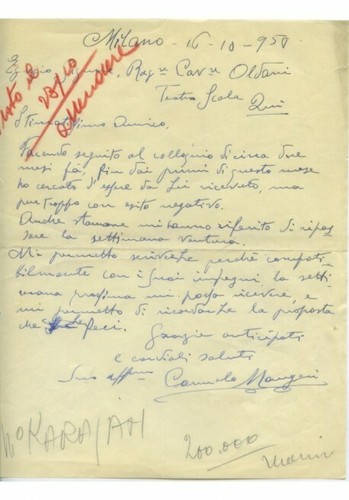 Milano - 16-10-950
Egregio Signor, Rag.re Cav.re Oldani
Teatro Scala
Qui
visto e
vorrei
Stimatissimo Amico,
Facendo seguito al colloquio di circa due
mesi fa, fin dai primi di questo mese
ho cercato d'essere da Lei ricevuto, ma
purtroppo con esito negativo.
Anche stamane mi hanno riferito di ripas
sare la settimana ventura.
Mi permetto scriverle perché compati
bilmente con i Suoi impegni la setti
mana prossima mi possa ricevere, e
mi permetto di ricordarle la proposta
che Le feci.
Grazie anticipati
e cordiali saluti
Suo aff.mo Carmelo Mangeri
M° KARAJAN
200.000